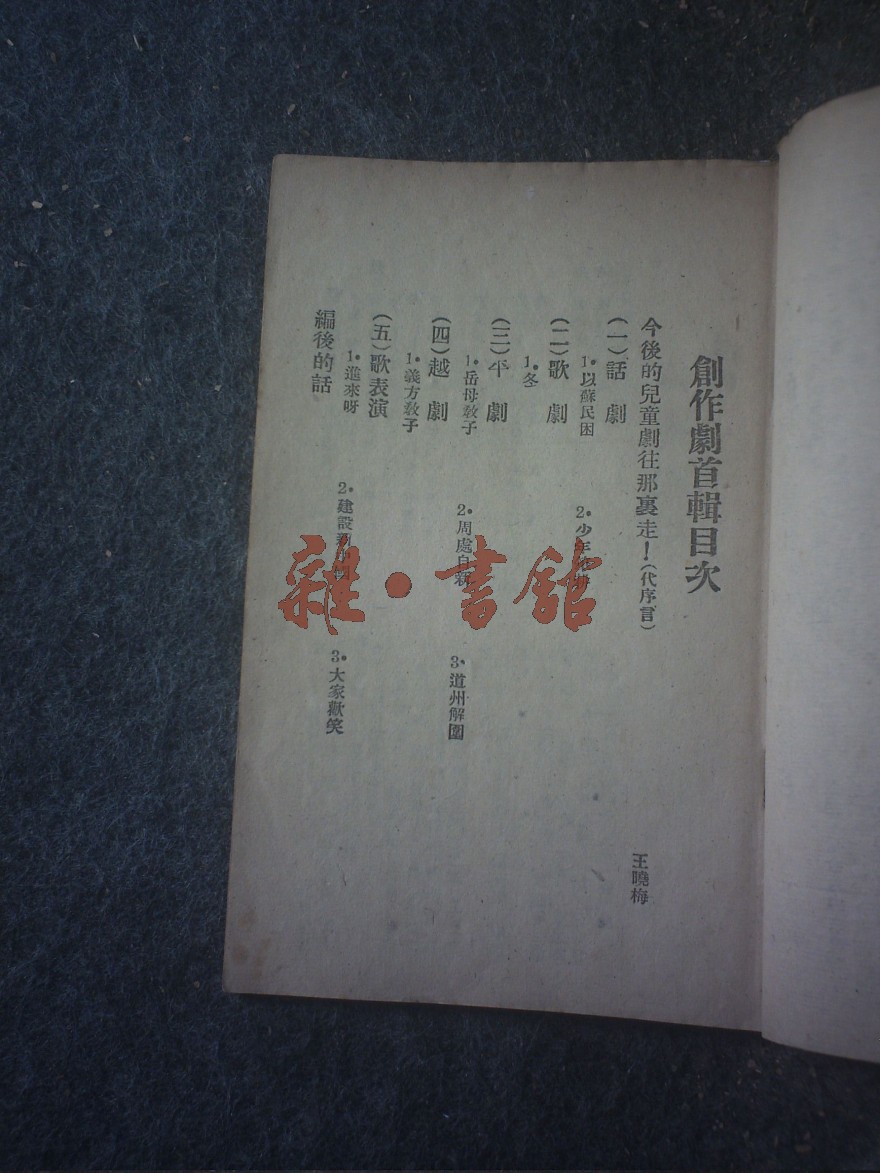 創作劇首輯目次
今後的兒童劇往那裏走！（代序言） 王曉梅
（一）話 劇
1.以蘇民困 2.少年
（二）歌 劇
1.冬
（三）平 劇
1.岳母教子 2.周處自新 3.道州解圍
（四）越 劇
1.義方教子
（五）歌表演
1.進來呀 2.建設新 3.大家歡笑
編後的話
雜·書館